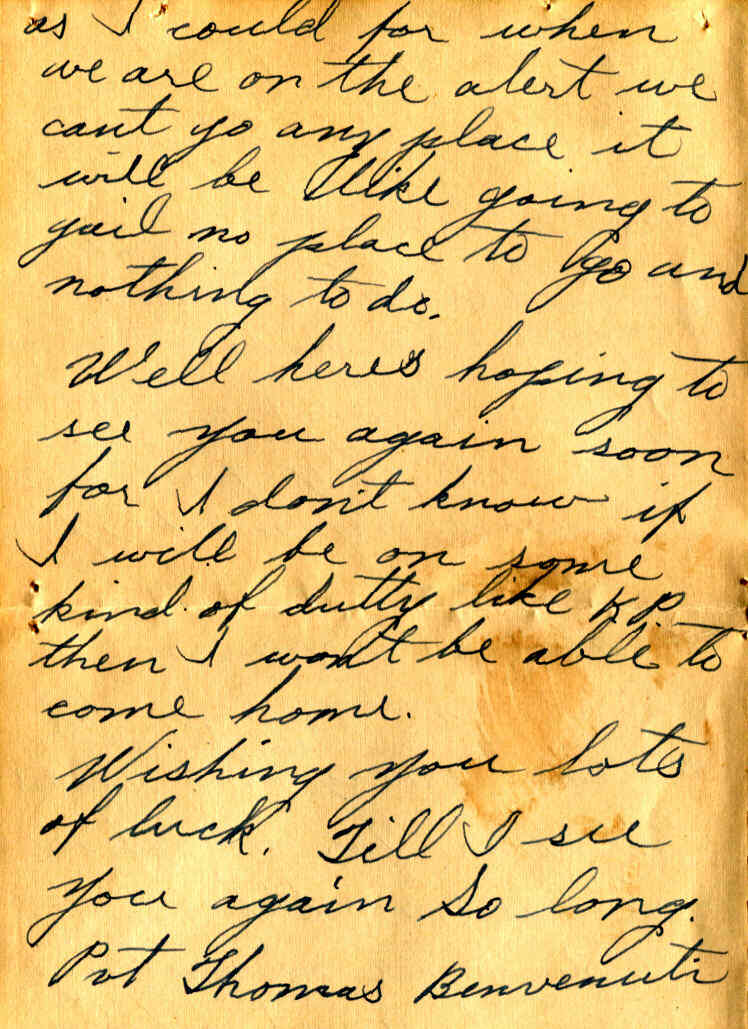 as I could for when
we are on the alert we
cant go any place it
will be like going to
jail no place to go and
nothing to do.
Well here's hoping to
see you again soon
for I don't know if
I will be on some
kind of dutty like K.P.
then I won't be able to
come home.
Wishing you lots
of luck. Till I see
you again So long.
Pvt Thomas Benvenuti